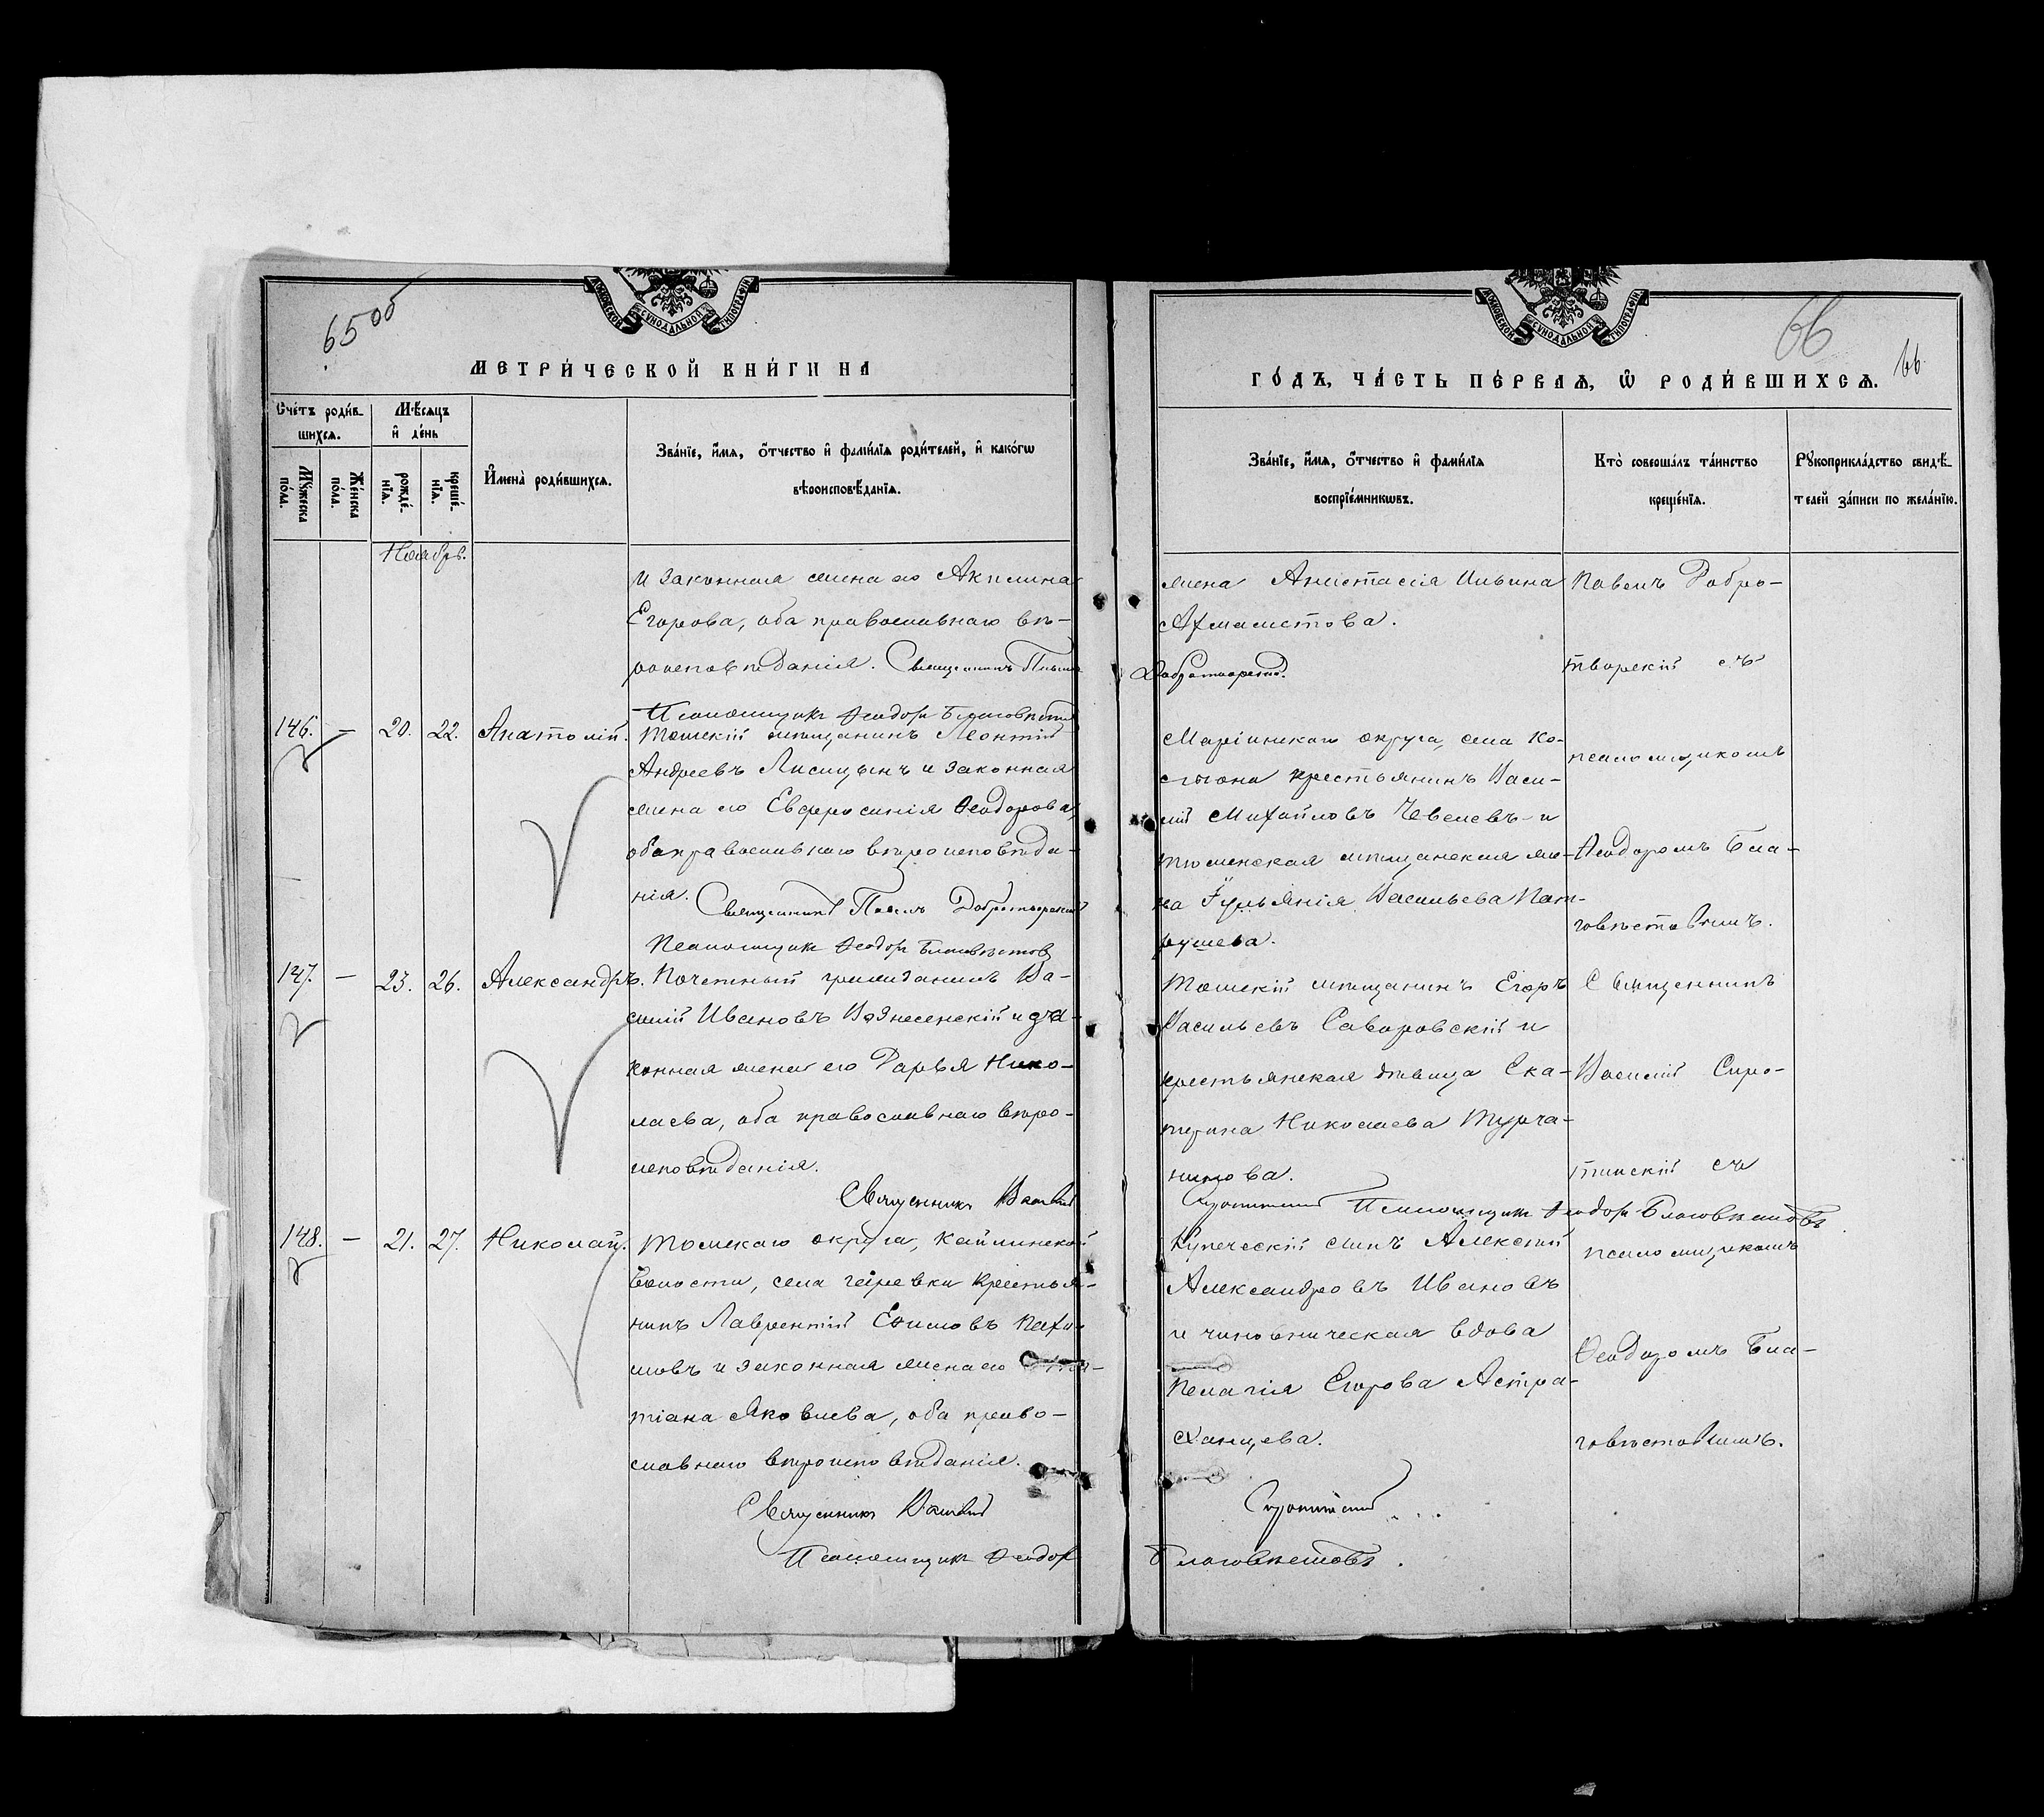 65 об
МОСКОВСКОЙ СѴНОДАЛЬНОЙ ТИПОГРАФІИ.
МЕТРИ́ЧЕСКОЙ КНИ́ГИ НА
Сче́тъ роди́в-
шихсѧ.
Мꙋ́жеска по́ла.
Же́нска по́ла.
Мѣ́сѧцъ
и҆ де́нь
рожде́-
нїѧ.
креще́-
нїѧ.
И҆мена̀ роди́вшихсѧ.
Зва́нїе, и҆́мѧ, ѻ҆́тчество и҆ фами́лїѧ роди́телей, и҆ како́гѡ
вѣроисповѣ́данїѧ.
Ноябрь.
и законная жена его Акилина
Егорова, оба православнаго вѣ-
роисповѣданія. Священникъ Павелъ
Псаломщикъ Ѳеодоръ Благовѣстовъ
146. — 20. 22. Анатолій. Томскій мѣщанинъ Леонтій
Андреевъ Лисицынъ и законная
жена его Евфросинія Ѳеодорова,
оба православнаго вѣроисповѣда-
нія. Священникъ Павелъ Добротворскій
Псаломщикъ Ѳеодоръ Благовѣстовъ
147. — 23. 26. Александръ. Почетный гражданинъ Ва-
силій Ивановъ Вознесенскій и за-
конная жена его Дарья Нико-
лаева, оба православнаго вѣро-
исповѣданія.
Священникъ Василій
148. — 21. 27. Николай. Томскаго округа, Кайлинской
волости, села Гаревки крестья-
нинъ Лаврентій Ефимовъ
и законная жена его
тіана Яковлева, оба право-
славнаго вѣроисповѣданія.
Священникъ Василій
Псаломщикъ Ѳеодоръ
66
66
МОСКОВСКОЙ СѴНОДАЛЬНОЙ ТИПОГРАФІИ.
ГО́ДЪ, ЧА́СТЬ ПЕ́РВАѦ, Ѡ҆ РОДИ́ВШИХСѦ.
Зва́нїе, и҆́мѧ, ѻ҆́тчество и҆ фами́лїѧ
воспрїе́мникѡвъ.
Кто̀ соверша́лъ та́инство
креще́нїѧ.
Рꙋкоприкла́дство свидѣ́-
телей за́писи по жела́нїю.
жена Анастасія Ильина
Ахмаметова.
Добротворскій.
Павелъ Добро-
творскій съ
псаломщикомъ
Ѳеодоромъ Бла-
говѣстовымъ.
Маріинскаго округа, села Ко-
стюна крестьянинъ Васи-
лій Михайловъ Чевелевъ и
Тюменская мѣщанская же-
на Іульянія Васильева Пат-
рушева.
Томскій мѣщанинъ Егоръ
Васильевъ Саворовскій и
крестьянская дѣвица Ека-
терина Николаева Турча-
нинова.
Сиротинскій Псаломщикъ Ѳеодоръ Благовѣстовъ
Священникъ
Василій Сиро-
тинскій съ
псаломщикомъ
Ѳеодоромъ Бла-
говѣстовымъ.
Купеческій сынъ Алексѣй
Александровъ Ивановъ
и чиновническая вдова
Пелагія Егорова Астра-
ханцева.
Сиротинскій
Благовѣстовъ.